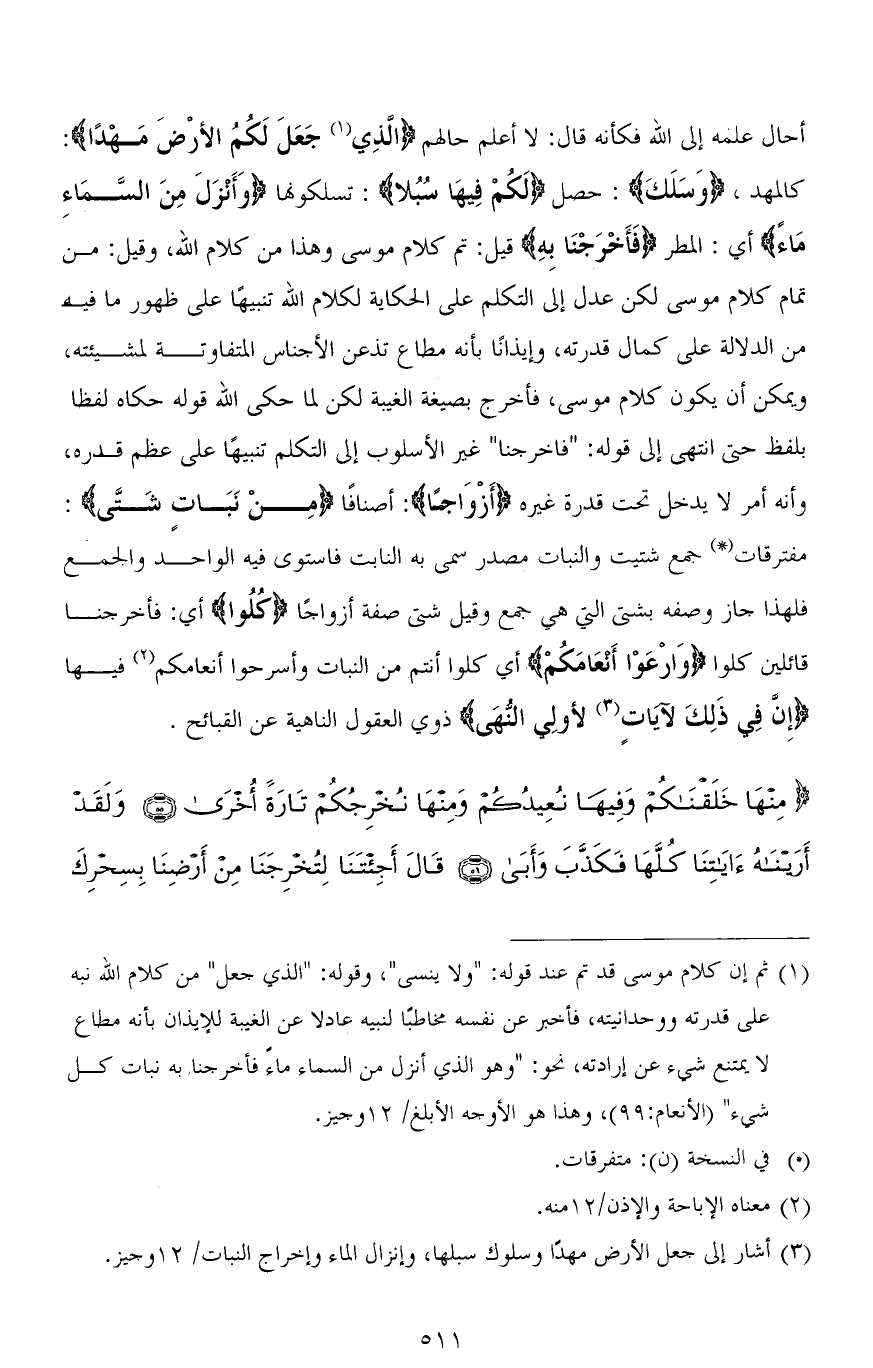 أحال علمه إلى الله فكأنه قال: لا أعلم حالهم ﴿الَّذِي(١) جَعَلَ لَكُمُ الأَرْضَ مَـهْدًا﴾:
كالمهد ، ﴿وَسَلَكَ﴾ : حصل ﴿لَكُمْ فِيهَا سُبُلا﴾ : تسلكونها ﴿وَأَنْزَلَ مِنَ السَّـمَاءِ
مَاءً﴾ أي : المطر ﴿فَأَخْرَجْنَا بِهِ﴾ قيل: تم كلام موسى وهذا من كلام الله، وقيل: مـن
تمام كلام موسى لكن عدل إلى التكلم على الحكاية لكلام الله تنبيهًا على ظهور ما فيـه
من الدلالة على كمال قدرته، وإيذانًا بأنه مطاع تذعن الأجناس المتفاوتـة لمشـيئته،
ويمكن أن يكون كلام موسى، فأخرج بصيغة الغيبة لكن لما حكى الله قوله حكاه لفظا
بلفظ حتى انتهى إلى قوله: "فاخرجنا" غير الأسلوب إلى التكلم تنبيهًا على عظم قـدره،
وأنه أمر لا يدخل تحت قدرة غيره ﴿أَزْوَاجـًا﴾: أصنافًا ﴿مِـنْ نَبَـاتٍ شَـتَّى﴾ :
مفترقات(*) جمع شتيت والنبات مصدر سمى به النابت فاستوى فيه الواحـد والجمـع
فلهذا حاز وصفه بشتى التي هي جمع وقيل شتى صفة أزواجًا ﴿كُلُوا﴾ أي: فأخرجنـا
قائلين كلوا ﴿وَارْعَوْا أَنْعَامَكُمْ﴾ أي كلوا أنتم من النبات وأسرحوا أنعامكم(٢) فيـها
﴿إِنَّ فِي ذَلِكَ لآيَاتٍ(٣) لأولِي النُّهَى﴾ ذوي العقول الناهية عن القبائح .
﴿ مِنْهَا خَلَقْنَٰكُمْ وَفِيهَا نُعِيدُكُمْ وَمِنْهَا نُخْرِجُكُمْ تَارَةً أُخْرَىٰ ۝٥٥ وَلَقَدْ
أَرَيْنَٰهُ ءَايَٰتِنَا كُلَّهَا فَكَذَّبَ وَأَبَىٰ ۝٥٦ قَالَ أَجِئْتَنَا لِتُخْرِجَنَا مِنْ أَرْضِنَا بِسِحْرِكَ
(١) ثم إن كلام موسى قد تم عند قوله: "ولا ينسى"، وقوله: "الذي جعل" من كلام الله نبه
على قدرته ووحدانيته، فأخبر عن نفسه مخاطبًا لنبيه عادلا عن الغيبة للإيذان بأنه مطاع
لا يمتنع شيء عن إرادته، نحو: "وهو الذي أنزل من السماء ماءً فأخرجنا به نبات كـل
شيء" (الأنعام:٩٩)، وهذا هو الأوجه الأبلغ/ ١٢وجيز.
(*) في النسخة (ن): متفرقات.
(٢) معناه الإباحة والإذن/١٢منه.
(٣) أشار إلى جعل الأرض مهدًا وسلوك سبلها، وإنزال الماء وإخراج النبات/ ١٢وجيز.
٥١١